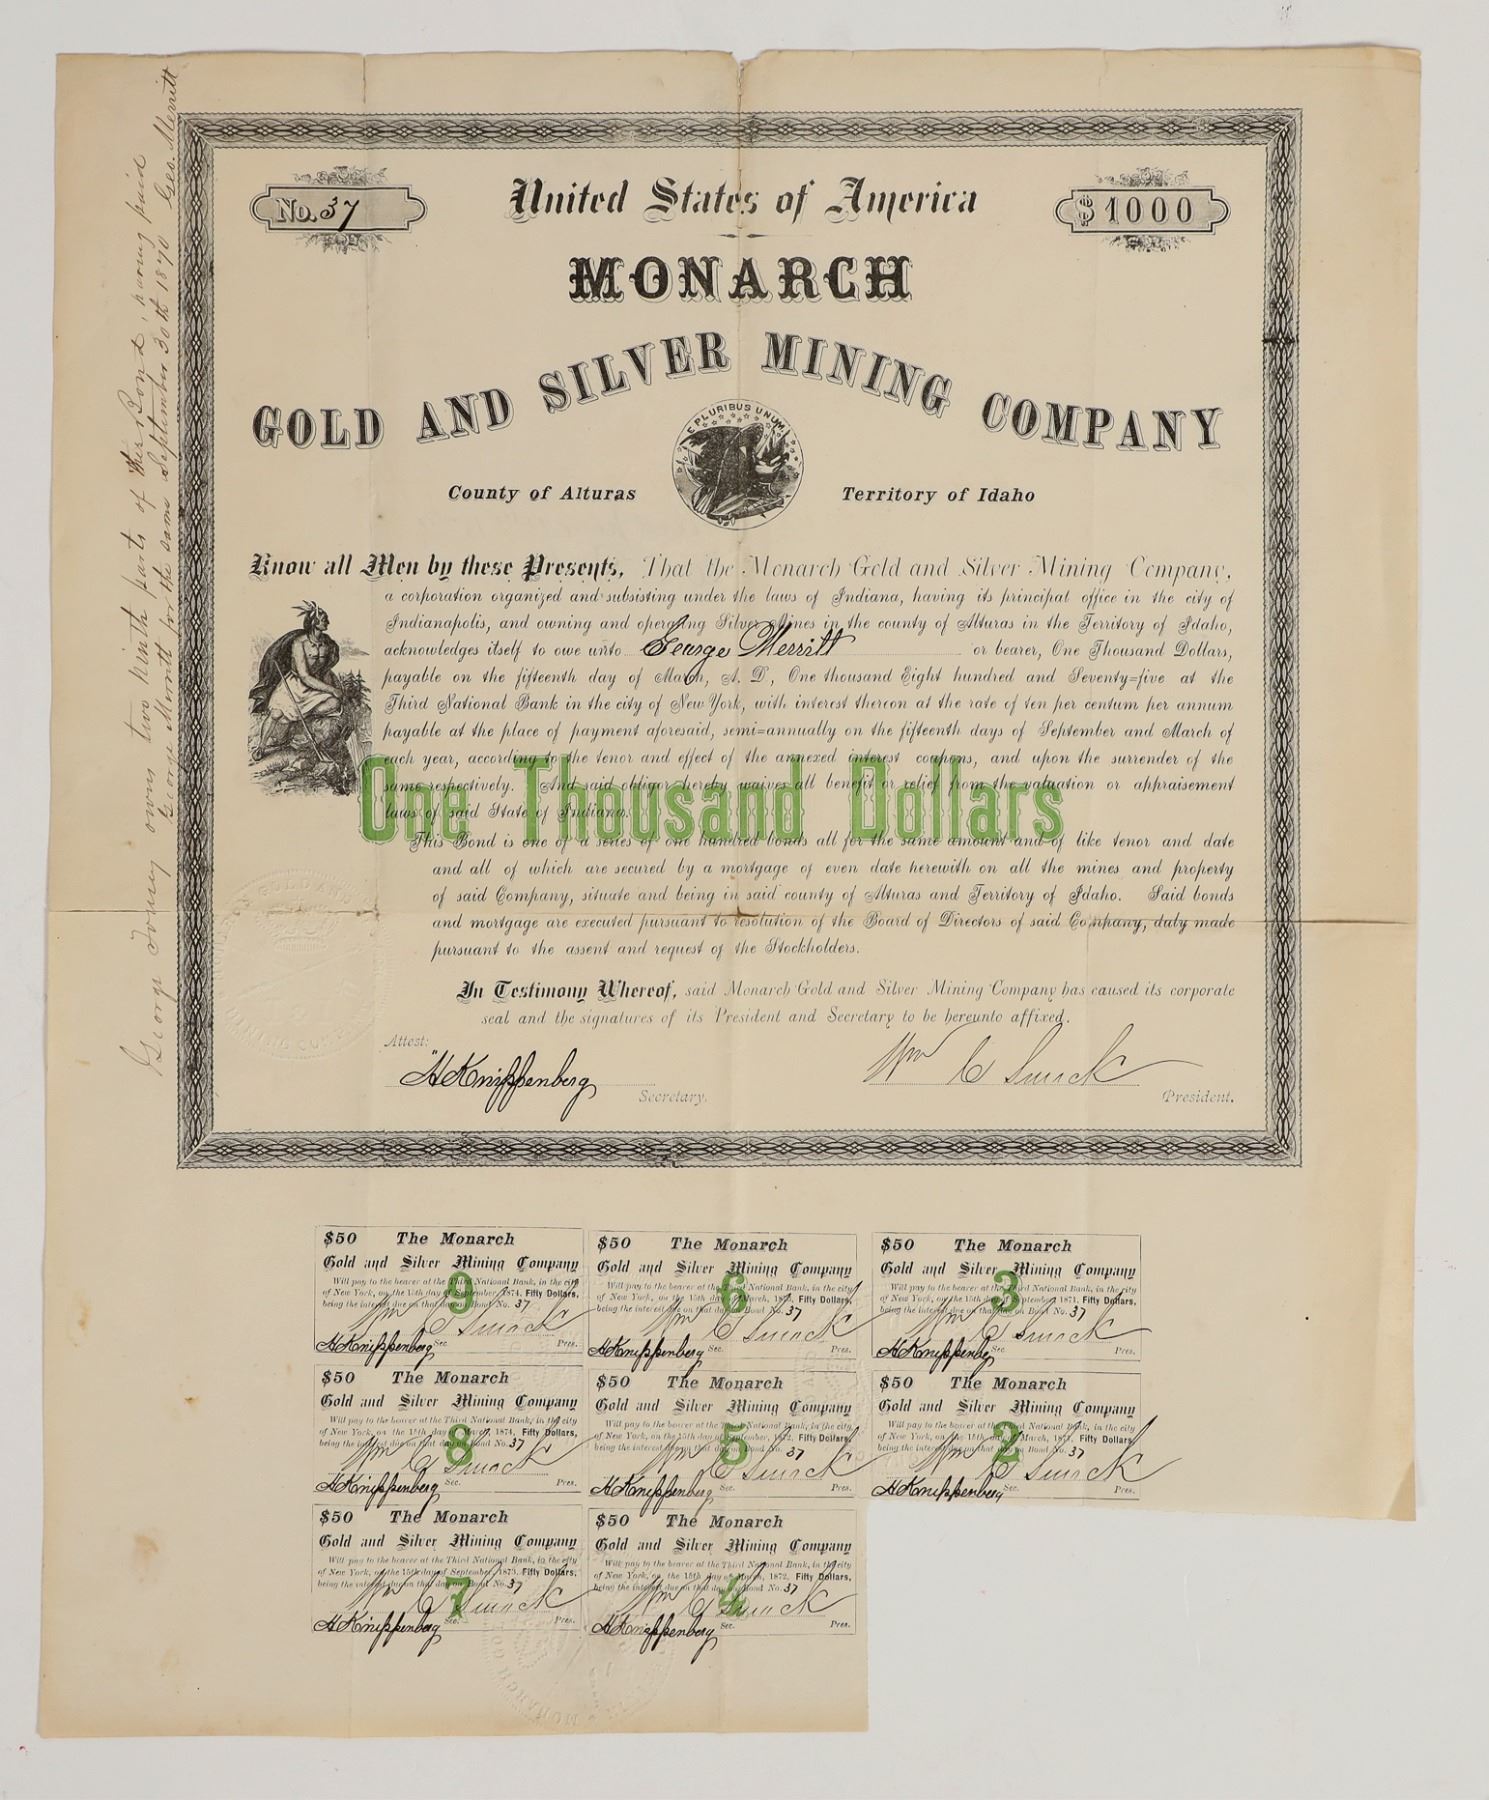 George Toney owns two Ninth parts of this Bond, having paid
George Merritt for the same September 30th 1870 Geo. Merritt
No. 37
United States of America
$1000
MONARCH
GOLD AND SILVER MINING COMPANY
E PLURIBUS UNUM
County of Alturas
Territory of Idaho
Know all Men by these Presents, That the Monarch Gold and Silver Mining Company,
a corporation organized and subsisting under the laws of Indiana, having its principal office in the city of
Indianapolis, and owning and operating Silver Mines in the county of Alturas in the Territory of Idaho,
acknowledges itself to owe unto George Merritt or bearer, One Thousand Dollars,
payable on the fifteenth day of March, A. D, One thousand Eight hundred and Seventy=five at the
Third National Bank in the city of New York, with interest thereon at the rate of ten per centum per annum
payable at the place of payment aforesaid, semi=annually on the fifteenth days of September and March of
each year, according to the tenor and effect of the annexed interest coupons, and upon the surrender of the
same respectively. And said obligor hereby waives all benefit or relief from the valuation or appraisement
laws of said State of Indiana.
One Thousand Dollars
This Bond is one of a series of one hundred bonds all for the same amount and of like tenor and date
and all of which are secured by a mortgage of even date herewith on all the mines and property
of said Company, situate and being in said county of Alturas and Territory of Idaho. Said bonds
and mortgage are executed pursuant to resolution of the Board of Directors of said Company, duly made
pursuant to the assent and request of the Stockholders.
In Testimony Whereof, said Monarch Gold and Silver Mining Company has caused its corporate
seal and the signatures of its President and Secretary to be hereunto affixed.
Attest:
H Knippenberg Secretary.
Wm C Smock President.
$50 The Monarch
Gold and Silver Mining Company
Will pay to the bearer at the Third National Bank, in the city
of New York, on the 15th day of September, 1874, Fifty Dollars,
being the interest due on that day on Bond No. 37
9
Wm C Smock
H Knippenberg Sec. Pres.
$50 The Monarch
Gold and Silver Mining Company
Will pay to the bearer at the Third National Bank, in the city
of New York, on the 15th day of March, 1873, Fifty Dollars,
being the interest due on that day on Bond No. 37
6
Wm C Smock
H Knippenberg Sec. Pres.
$50 The Monarch
Gold and Silver Mining Company
Will pay to the bearer at the Third National Bank, in the city
of New York, on the 15th day of September, 1871, Fifty Dollars,
being the interest due on that day on Bond No. 37
3
Wm C Smock
H Knippenberg Sec. Pres.
$50 The Monarch
Gold and Silver Mining Company
Will pay to the bearer at the Third National Bank, in the city
of New York, on the 15th day of March, 1874, Fifty Dollars,
being the interest due on that day on Bond No. 37
8
Wm C Smock
H Knippenberg Sec. Pres.
$50 The Monarch
Gold and Silver Mining Company
Will pay to the bearer at the Third National Bank, in the city
of New York, on the 15th day of September, 1872, Fifty Dollars,
being the interest due on that day on Bond No. 37
5
Wm C Smock
H Knippenberg Sec. Pres.
$50 The Monarch
Gold and Silver Mining Company
Will pay to the bearer at the Third National Bank, in the city
of New York, on the 15th day of March, 1871, Fifty Dollars,
being the interest due on that day on Bond No. 37
2
Wm C Smock
H Knippenberg Sec. Pres.
$50 The Monarch
Gold and Silver Mining Company
Will pay to the bearer at the Third National Bank, in the city
of New York, on the 15th day of September, 1873, Fifty Dollars,
being the interest due on that day on Bond No. 37
7
Wm C Smock
H Knippenberg Sec. Pres.
$50 The Monarch
Gold and Silver Mining Company
Will pay to the bearer at the Third National Bank, in the city
of New York, on the 15th day of March, 1872, Fifty Dollars,
being the interest due on that day on Bond No. 37
4
Wm C Smock
H Knippenberg Sec. Pres.